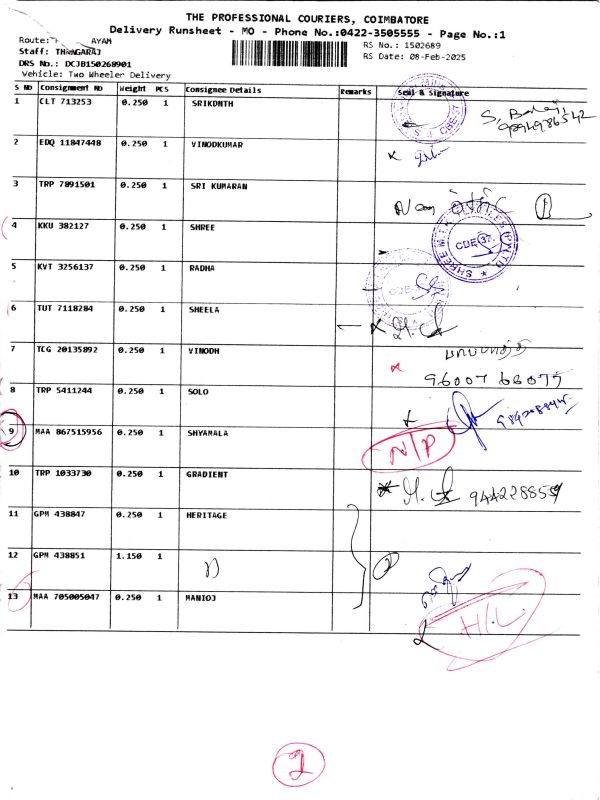 THE PROFESSIONAL COURIERS, COIMBATORE
Delivery Runsheet - MO - Phone No.:0422-3505555 - Page No.:1
Route: AYAM
RS No.: 1502689
Staff: THANGARAJ
RS Date: 08-Feb-2025
DRS No.: DCJB150268901
Vehicle: Two Wheeler Delivery
S No Consignment No Weight PCS Consignee Details Remarks Seal & Signature
1 CLT 713253 0.250 1 SRIKDNTH
2 EDQ 11847448 0.250 1 VINODKUMAR
3 TRP 7891501 0.250 1 SRI KUMARAN
4 KKU 382127 0.250 1 SHREE
CBE 37
5 KVT 3256137 0.250 1 RADHA
6 TUT 7118284 0.250 1 SHEELA
7 TCG 20135892 0.250 1 VINODH
8 TRP 5411244 0.250 1 SOLO
9 MAA 867515956 0.250 1 SHYAMALA N/P
10 TRP 1033730 0.250 1 GRADIENT
11 GPM 438847 0.250 1 HERITAGE
12 GPM 438851 1.150 1
13 MAA 705005047 0.250 1 MANIOJ H/L
2